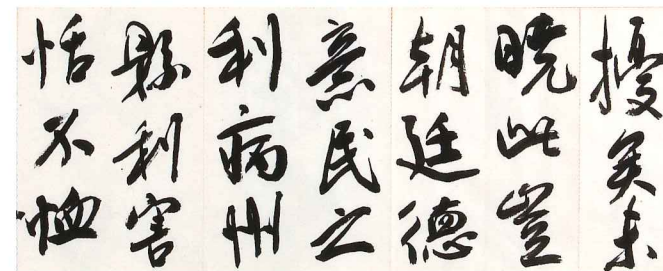 擾矣未
曉此豈
朝廷德
意民之
利病州
縣利害
恬不恤